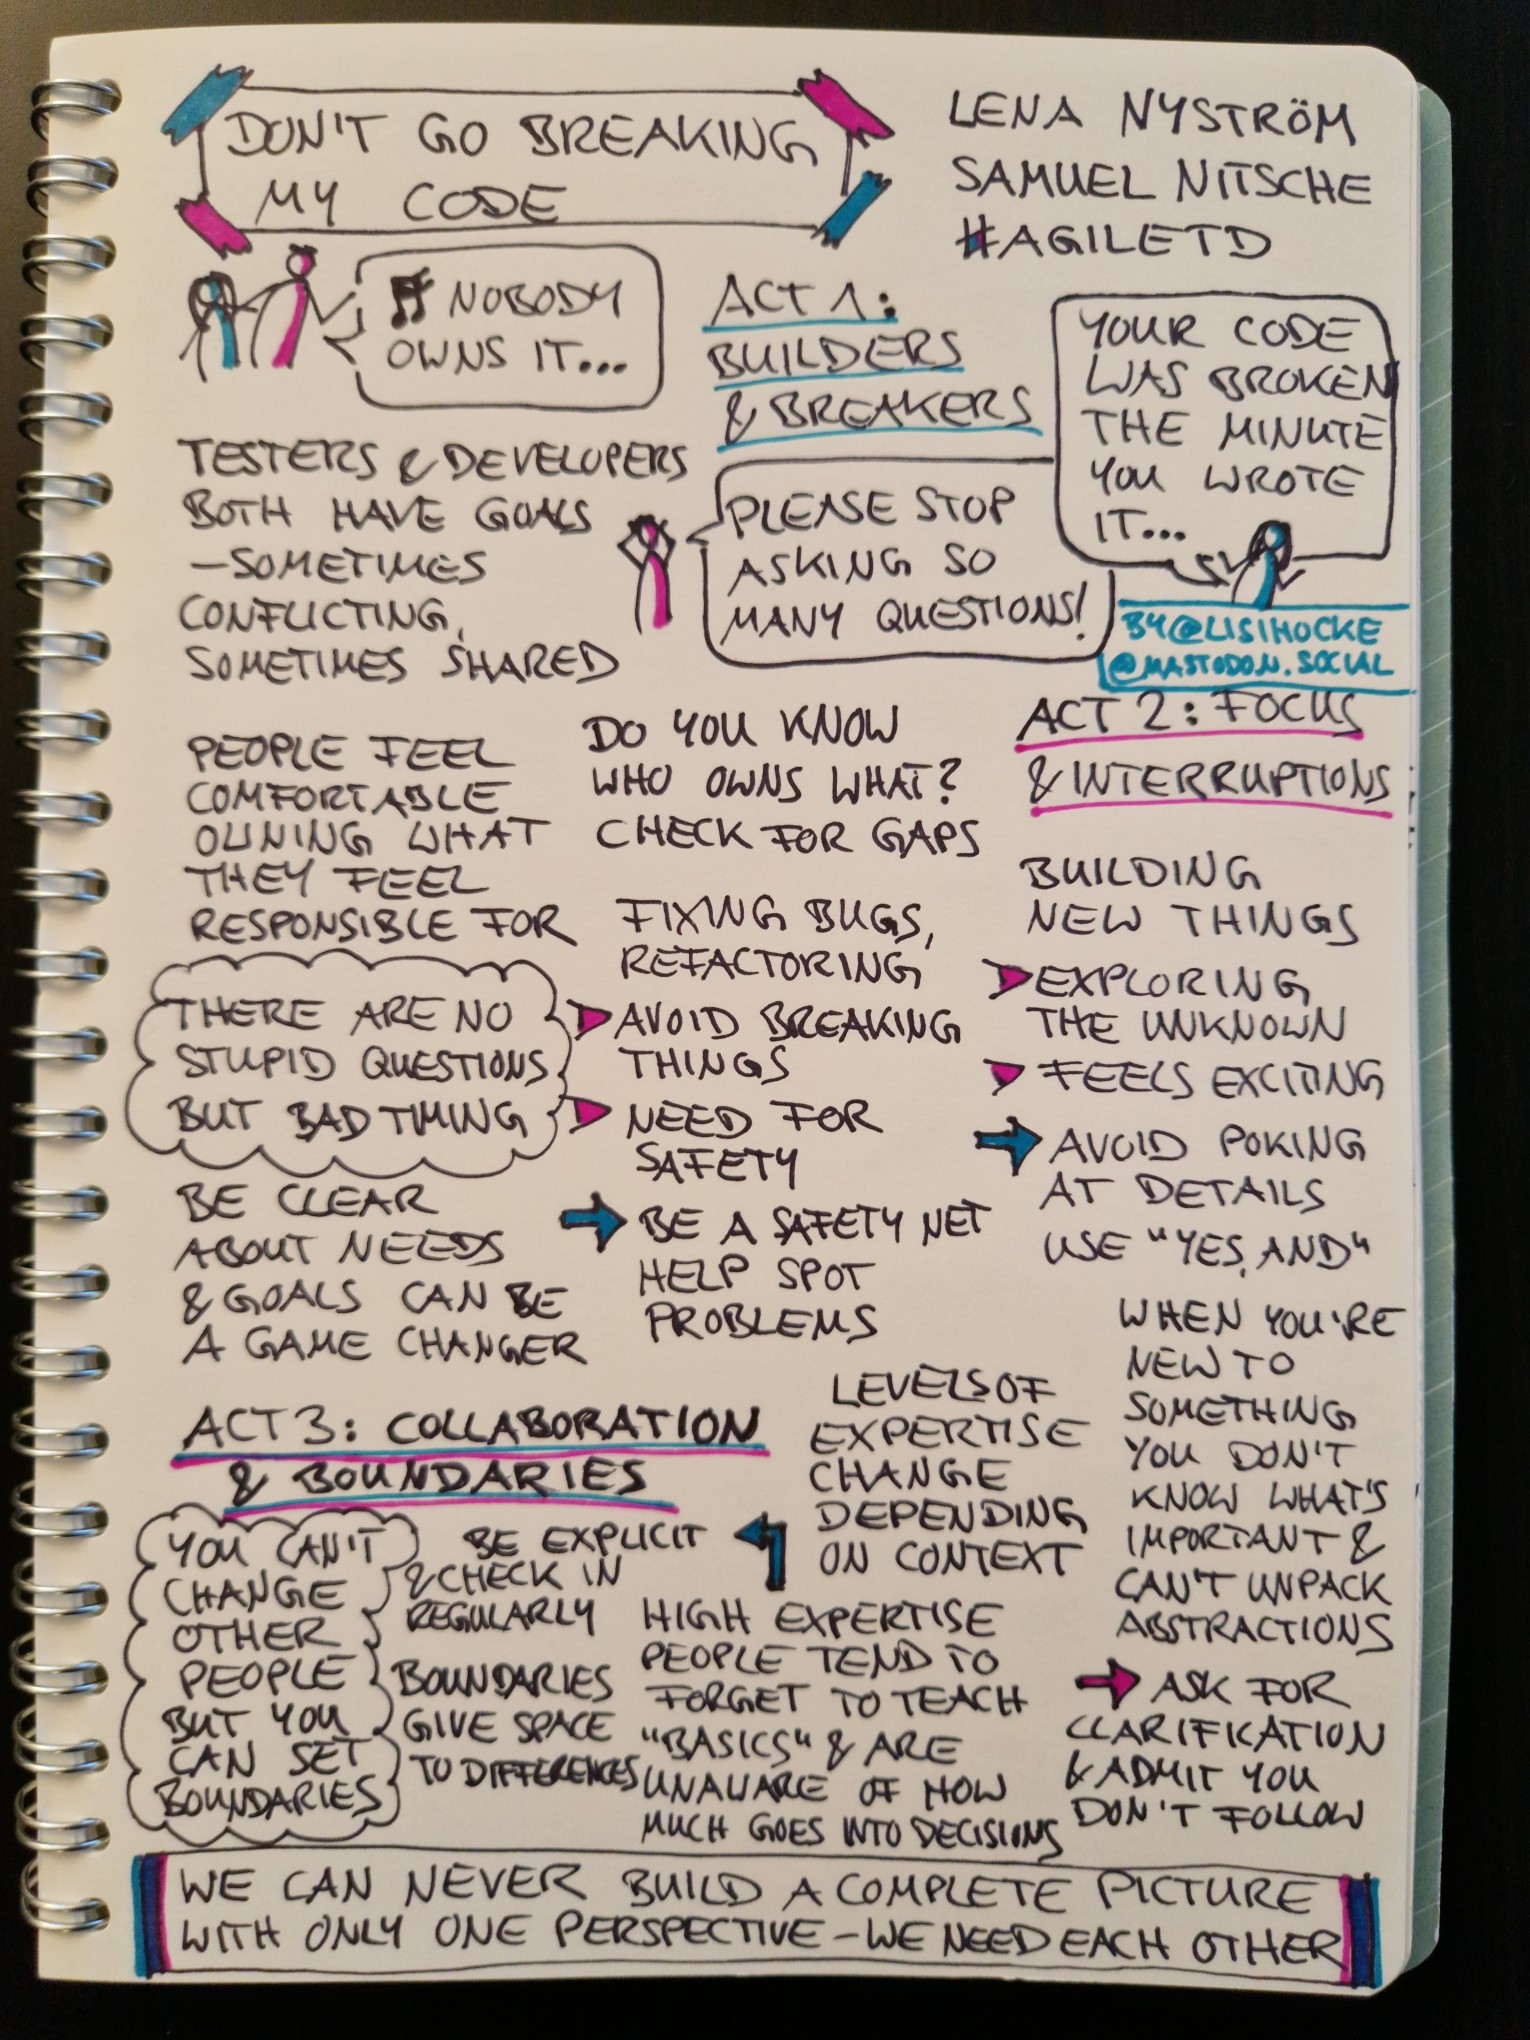 DON'T GO BREAKING
MY CODE
LENA NYSTRÖM
SAMUEL NITSCHE
#AGILETD
♫ NOBODY
OWNS IT...
ACT 1:
BUILDERS
& BREAKERS
YOUR CODE
WAS BROKEN
THE MINUTE
YOU WROTE
IT...
PLEASE STOP
ASKING SO
MANY QUESTIONS!
BY @LISIHOCKE
@MASTODON.SOCIAL
TESTERS & DEVELOPERS
BOTH HAVE GOALS
– SOMETIMES
CONFLICTING,
SOMETIMES SHARED
PEOPLE FEEL
COMFORTABLE
OWNING WHAT
THEY FEEL
RESPONSIBLE FOR
DO YOU KNOW
WHO OWNS WHAT?
CHECK FOR GAPS
ACT 2: FOCUS
& INTERRUPTIONS
THERE ARE NO
STUPID QUESTIONS
BUT BAD TIMING
FIXING BUGS,
REFACTORING
AVOID BREAKING
THINGS
NEED FOR
SAFETY
BE A SAFETY NET
HELP SPOT
PROBLEMS
BUILDING
NEW THINGS
EXPLORING
THE UNKNOWN
FEELS EXCITING
AVOID POKING
AT DETAILS
USE "YES, AND"
BE CLEAR
ABOUT NEEDS
& GOALS CAN BE
A GAME CHANGER
ACT 3: COLLABORATION
& BOUNDARIES
YOU CAN'T
CHANGE
OTHER
PEOPLE
BUT YOU
CAN SET
BOUNDARIES
BE EXPLICIT
& CHECK IN
REGULARLY
BOUNDARIES
GIVE SPACE
TO DIFFERENCES
LEVELS OF
EXPERTISE
CHANGE
DEPENDING
ON CONTEXT
HIGH EXPERTISE
PEOPLE TEND TO
FORGET TO TEACH
"BASICS" & ARE
UNAWARE OF HOW
MUCH GOES INTO DECISIONS
WHEN YOU'RE
NEW TO
SOMETHING
YOU DON'T
KNOW WHAT'S
IMPORTANT &
CAN'T UNPACK
ABSTRACTIONS
ASK FOR
CLARIFICATION
& ADMIT YOU
DON'T FOLLOW
WE CAN NEVER BUILD A COMPLETE PICTURE
WITH ONLY ONE PERSPECTIVE – WE NEED EACH OTHER